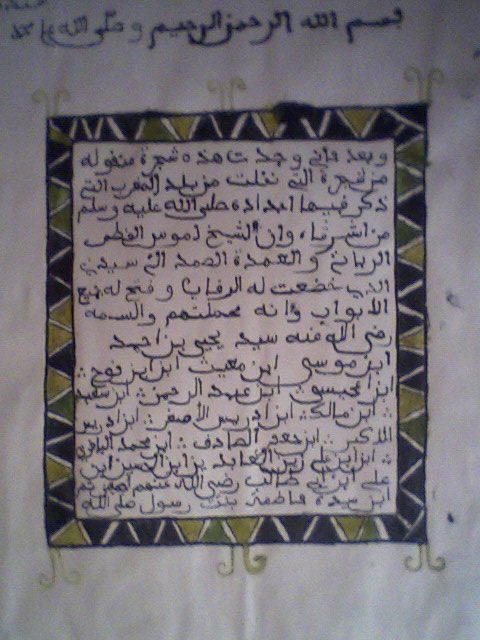 بسم الله الرحمن الرحيم وصلى الله
وبعد فإني وجدت هذه شجرة منقوله
من شجرة التي نقلت من بلد المغرب التي
ذكر فيها اجداده صلى الله عليه وسلم
من اشرفاء وان الشيخ القطب
الرباني والعمدة الصمد
الذي خضعت له الرقاب وفتح له
الابواب وانه
رضى الله عنه سيد يحيى بن احمد
ابن موسى ابن معيث ابن
ابن عيسى ابن عبد الرحمن ابن
ابن مالك ابن ادريس الأصغر ابن ادريس
الاكبر الصادف ابن محمد
ابن علي زين العابد بن ابن الحسن ابن
علي ابن ابي طالب رضي الله عنهم
ابن سيدة فاطمة بنت رسول صلى الله